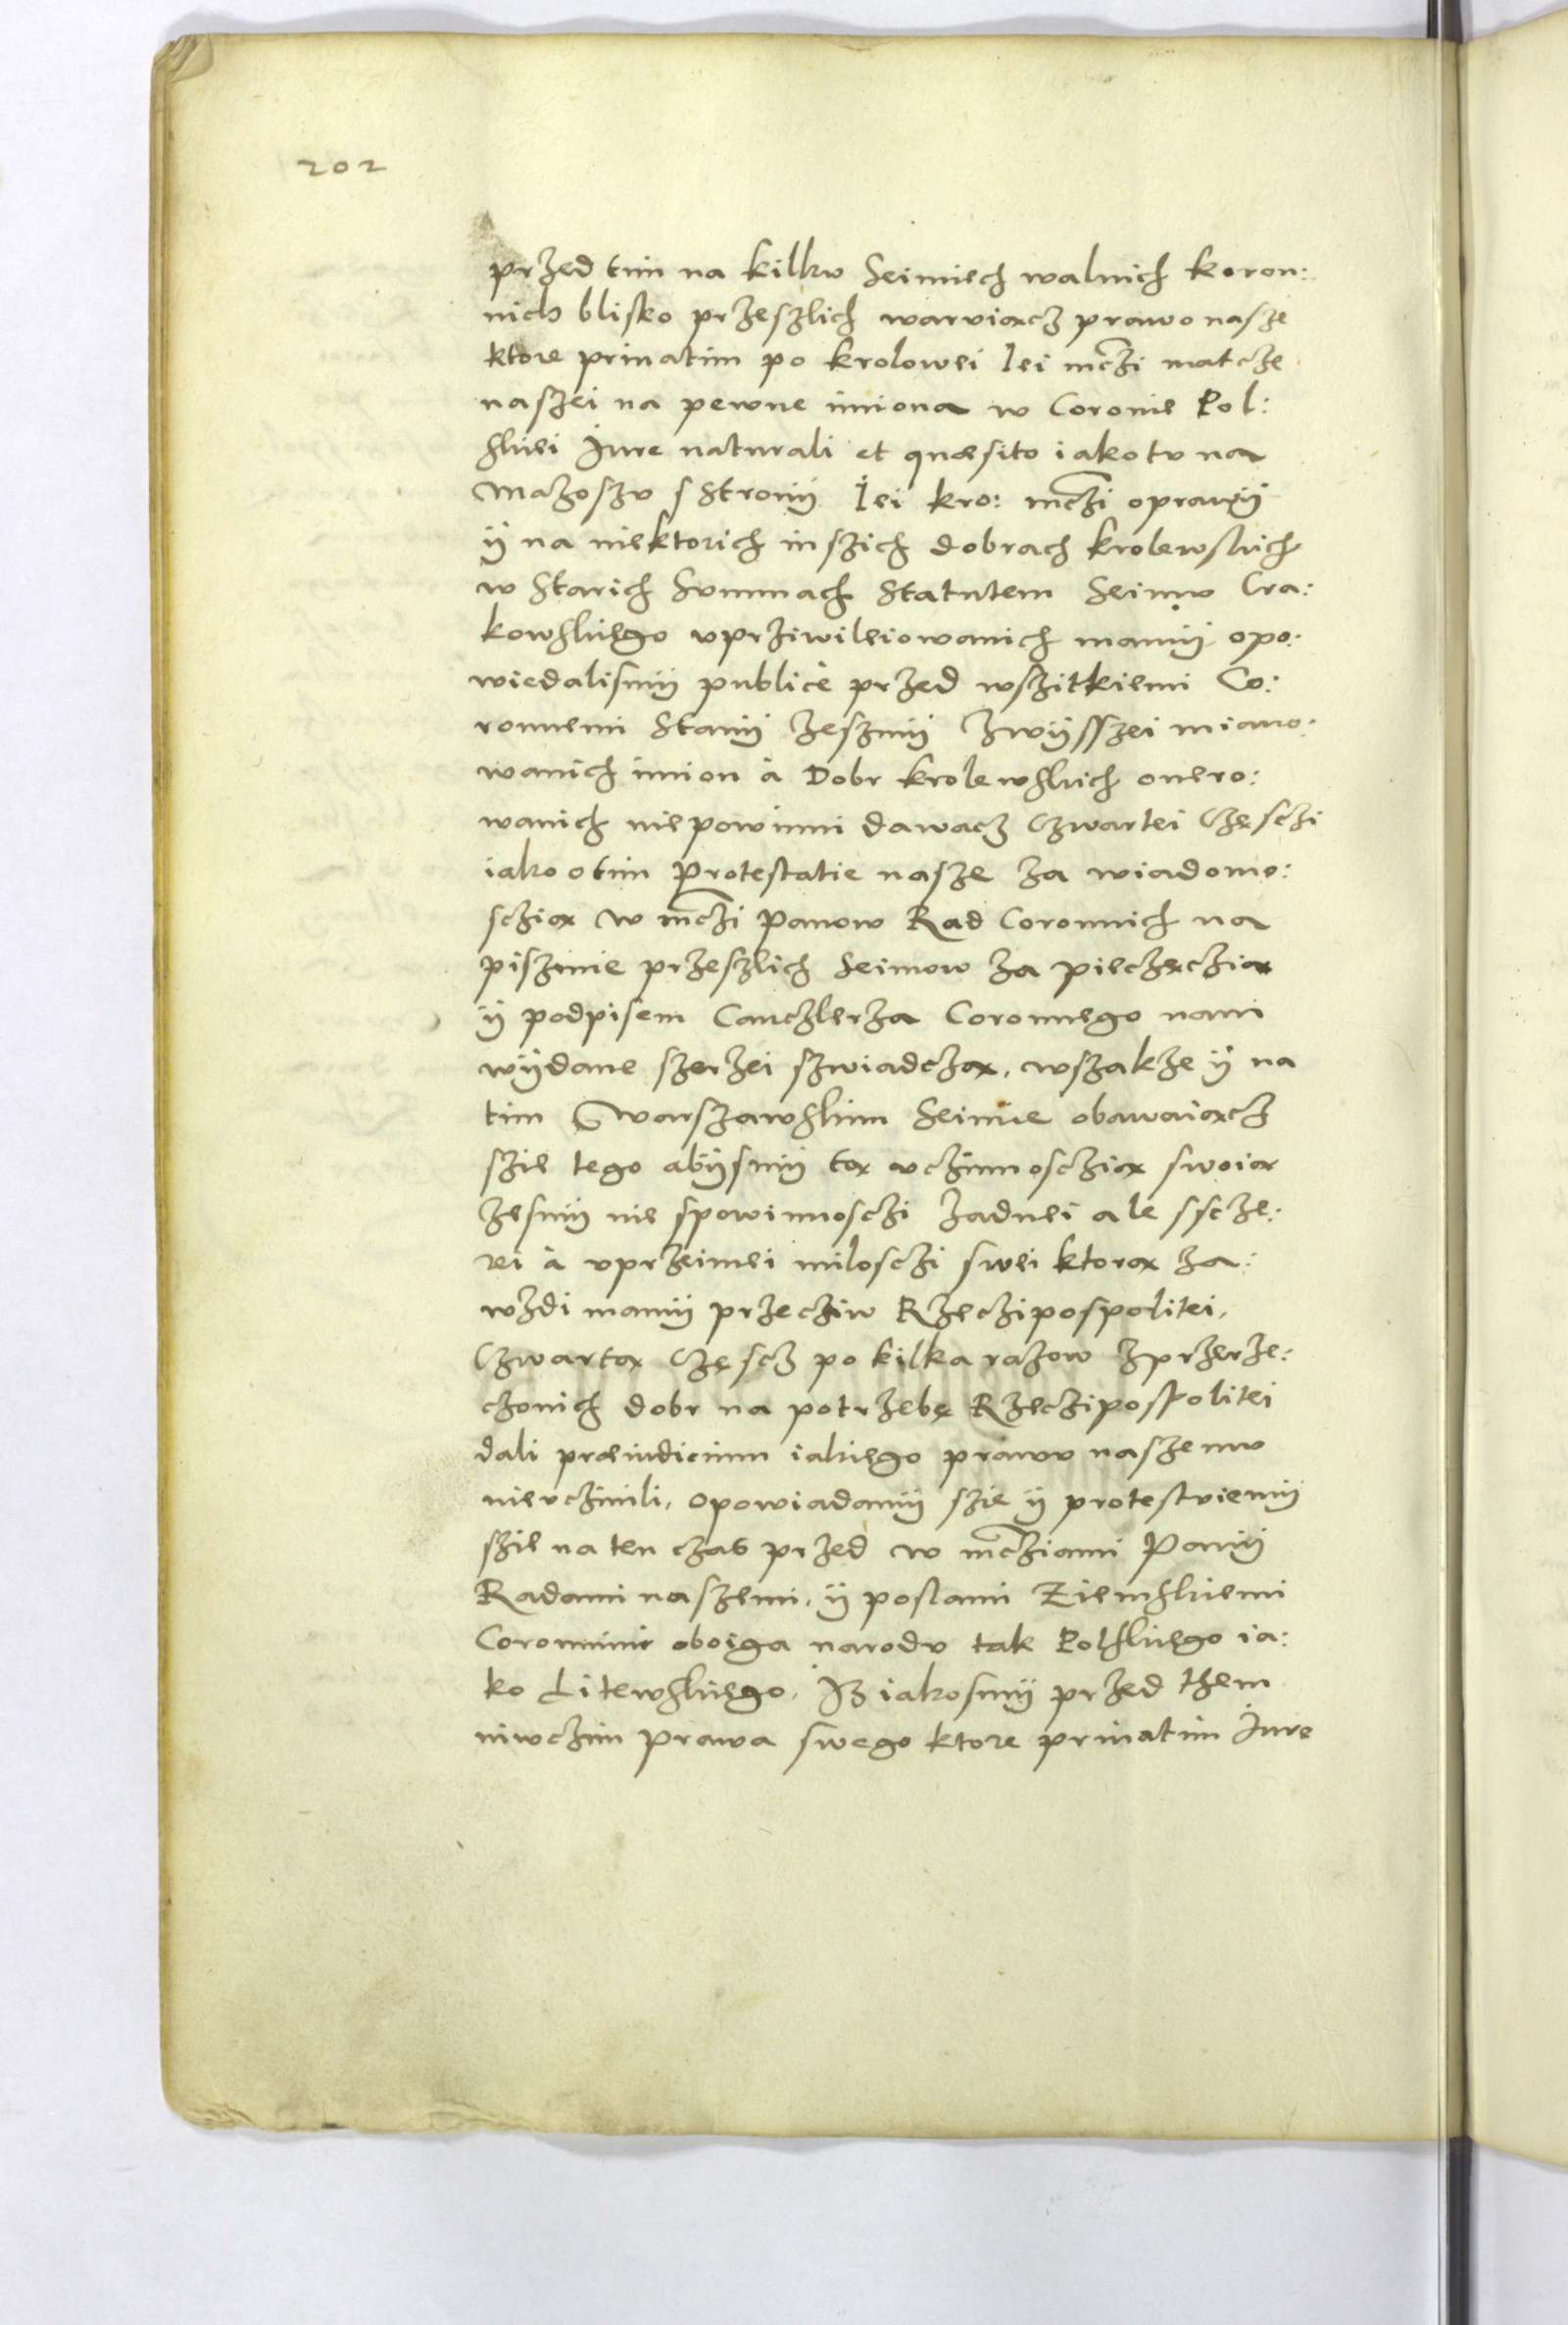 202
przed tim na kilku Seimiech walnich koron:
nich blisko przeszlich waruiącz prawo nasze
ktore priuatim po krolowei Iei mczi matcze
naszei na pewne imiona w Coronie Pol:
skiei Iure naturali et quæsito iako tu na
Mazoszu s Stronÿ Iei kro: mczi oprawÿ
ÿ na niektorich inszich dobrach krolewskich
w Starich Summach Statutem Seimu Cra:
kowskiego upriziwileiowanich mamÿ opo:
wiedalismÿ publicè przed wszitkiemi Co:
ronnemi Stanÿ zeszmÿ zwÿsszei miano:
wanich imion à Dobr krolewskich onero:
wanich niepowinni dawacz Czwartei Częsczi
iako otim Protestatie nasze za wiadomo:
sczią w mczi Panow Rad Coronnich na
piszmie przeszlich Seimow za pieczęczią
ÿ podpisem Canczlerza Coronnego nam
wÿdane szerzei szwiadczą, wszakze ÿ na
tim Warszawskim Seimie obawaiącz
szie tego abÿsmÿ tą uczinnosczią swoią
zesmÿ nie spowinnosczi zadnei ale sscze:
rei à uprzeimei milosczi swei ktorą za:
wzdi mamÿ przecziw Rzeczipospolitei,
Czwartą Częscz po kilka razow zprzerze:
czonich dobr na potrzebę Rzeczipospolitei
dali præiudicium iakiego prawu naszemu
nieuczinili, opowiadamÿ szie ÿ protestuiemÿ
szie na ten czas przed w mcziami Panÿ
Radami naszemi, ÿ poslami Ziemskiemi
Coronnimi oboiga narodu tak Polskiego ia:
ko Litewskiego, Iz iakosmÿ przed them
niwczim prawa swego ktore priuatim Iure